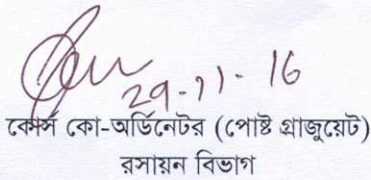 29-11-16
কোর্স কো-অর্ডিনেটর (পোষ্ট গ্রাজুয়েট)
রসায়ন বিভাগ